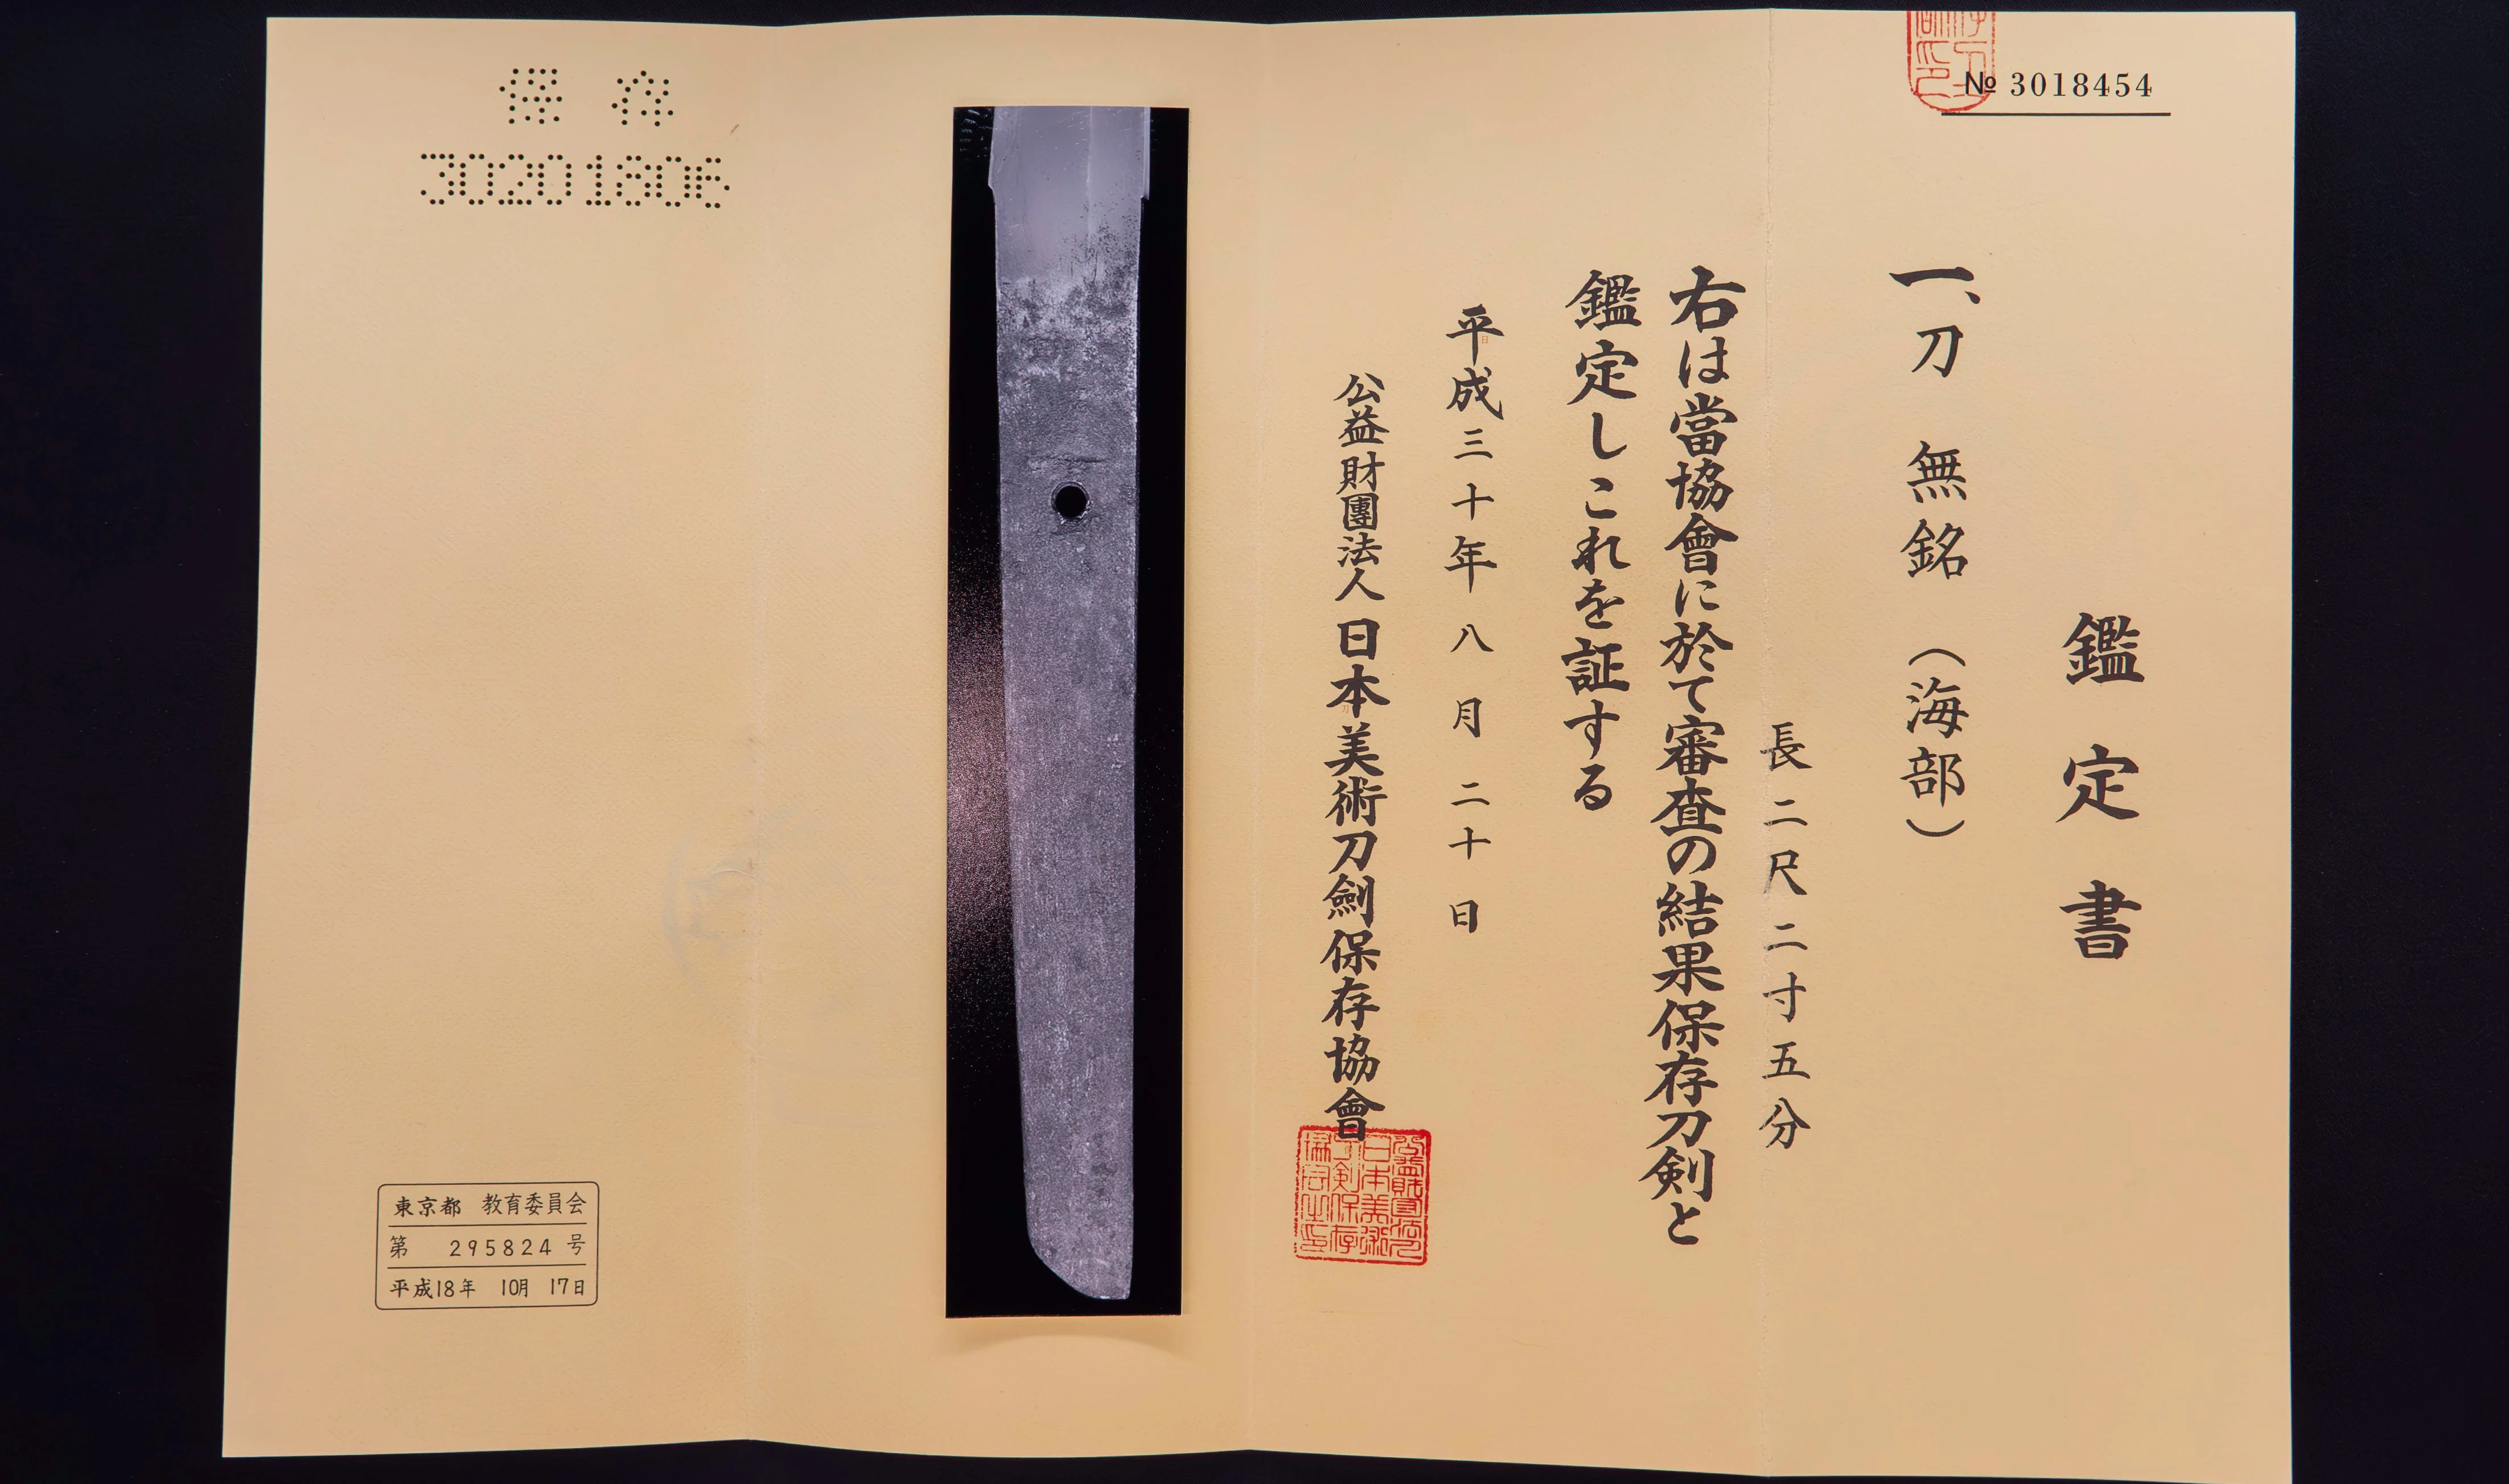 № 3018454
鑑定書
一、刀 無銘（海部）
長二尺二寸五分
右は當協會に於て審査の結果保存刀剣と
鑑定しこれを証する
平成三十年八月二十日
公益財團法人日本美術刀劍保存協會
保存
30201806
東京都 教育委員会
第 295824 号
平成18年 10月 17日